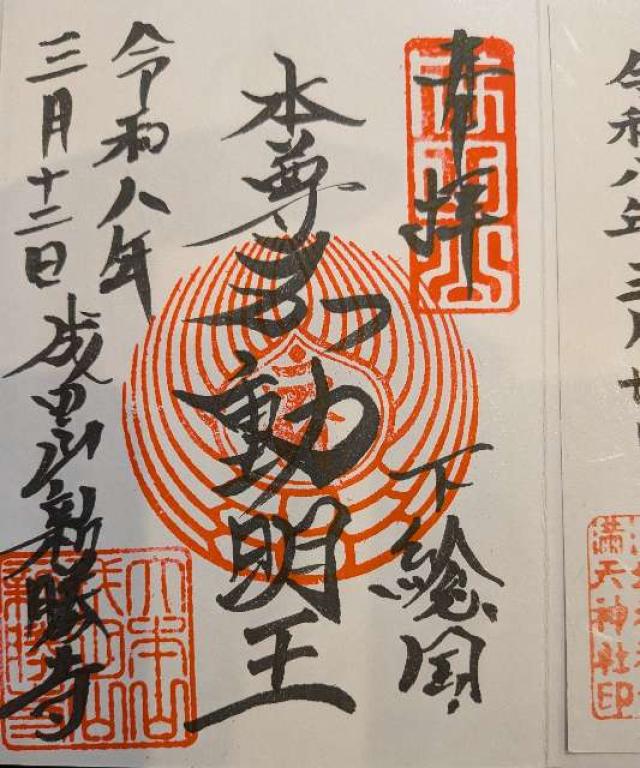 奉拝
下総国
本尊不動明王
令和八年
三月十二日
成田山新勝寺
成田山
大本山
成田山
新勝寺
令和八年三月廿
満天神社印